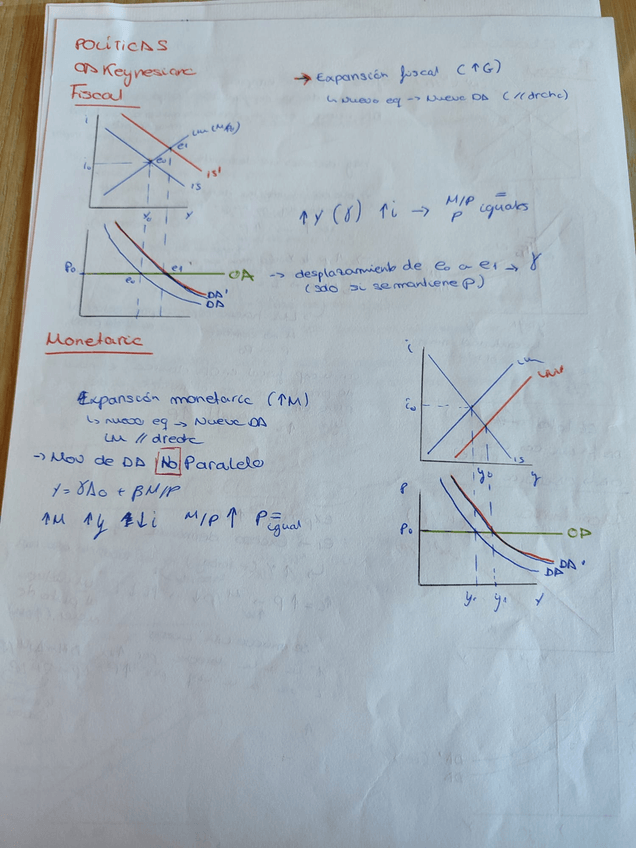 POLÍTICAS
OA Keynesiana
Fiscal
→ Expansión fiscal (↑G)
↳ Nuevo eq → Nueva DA (// drcha)
i
LM (M/P₀)
e₁
e₀
i₀
IS'
IS
Y₀
Y
↑Y (γ) ↑i → M/P = iguales
P
P₀
e₀
e₁
OA
DA'
DA
→ desplazamiento de e₀ a e₁ → γ
(solo si se mantiene P)
Monetaria
Expansión monetaria (↑M)
↳ nuevo eq → Nueva DA
LM // drecha
→ Mov de DA NO Paralelo
Y = γA₀ + βM/P
↑M ↑y ↓i M/P ↑ P = igual
i
LM
LM'
i₀
IS
y₀
y
P
P₀
OA
DA'
DA
y₁
Y